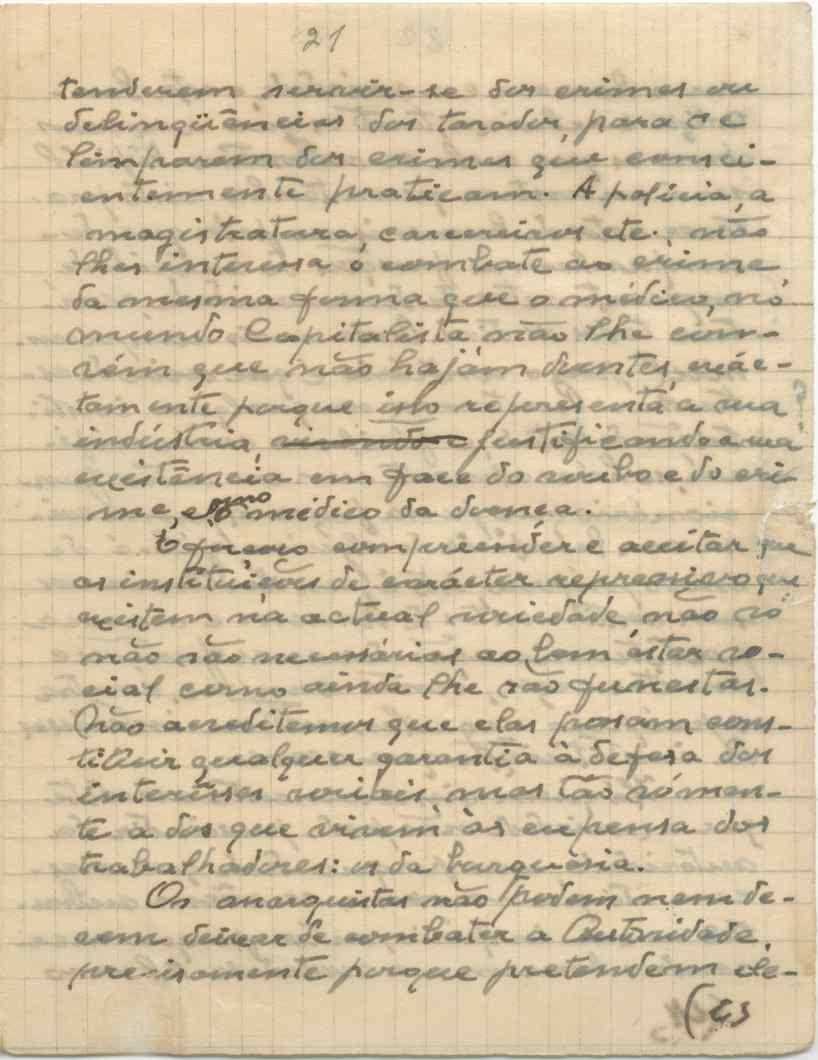 21
tenderem servir-se dos crimes ou
delinqüências dos tarados, para se
limparem dos crimes que consci-
entemente praticam. A polícia, a
magistratura, carcereiros etc., não
lhes interessa o combate ao crime
da mesma forma que o médico, no
mundo Capitalista não lhe con-
vém que não hajam doentes, exác-
tamente porque isso representa a sua
indústria, justificando a sua
existência em face do roubo e do cri-
me, e como o médico da doença.
É forçoso compreender e aceitar que
as instituições de carácter repressivo que
existem na actual sociedade não só
não são necessárias ao bem estar so-
cial como ainda lhe são funestas.
Não acreditemos que elas possam cons-
tituir qualquer garantia à defesa dos
interêsses sociais, mas tão sómen-
te a dos que vivem às expensa dos
trabalhadores: os da burguesia.
Os anarquistas não podem nem de-
vem deixar de combater a Autoridade,
precisamente porque pretendem ele-